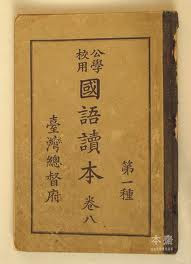 公學校用
國語讀本 卷八
第一種
臺灣總督府
本齋